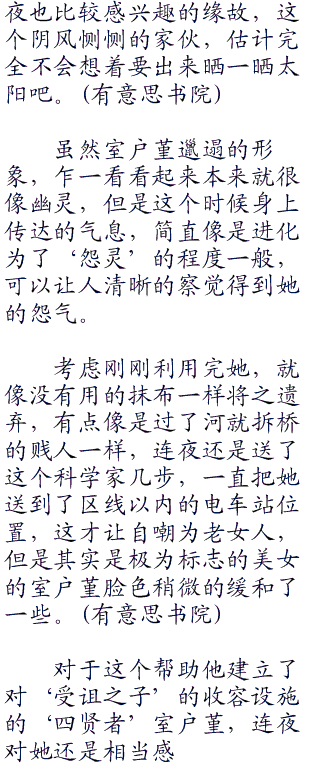 夜也比较感兴趣的缘故，这
个阴风恻恻的家伙，估计完
全不会想着要出来晒一晒太
阳吧。(有意思书院)
虽然室户堇邋遢的形
象，乍一看看起来本来就很
像幽灵，但是这个时候身上
传达的气息，简直像是进化
为了‘怨灵’的程度一般，
可以让人清晰的察觉得到她
的怨气。
考虑刚刚利用完她，就
像没有用的抹布一样将之遗
弃，有点像是过了河就拆桥
的贱人一样，连夜还是送了
这个科学家几步，一直把她
送到了区线以内的电车站位
置，这才让自嘲为老女人，
但是其实是极为标志的美女
的室户堇脸色稍微的缓和了
一些。(有意思书院)
对于这个帮助他建立了
对‘受诅之子’的收容设施
的‘四贤者’室户堇，连夜
对她还是相当感